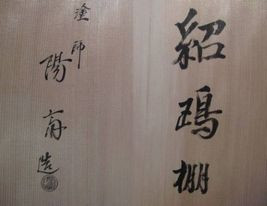 紹鴎棚
塗師
陽斎造